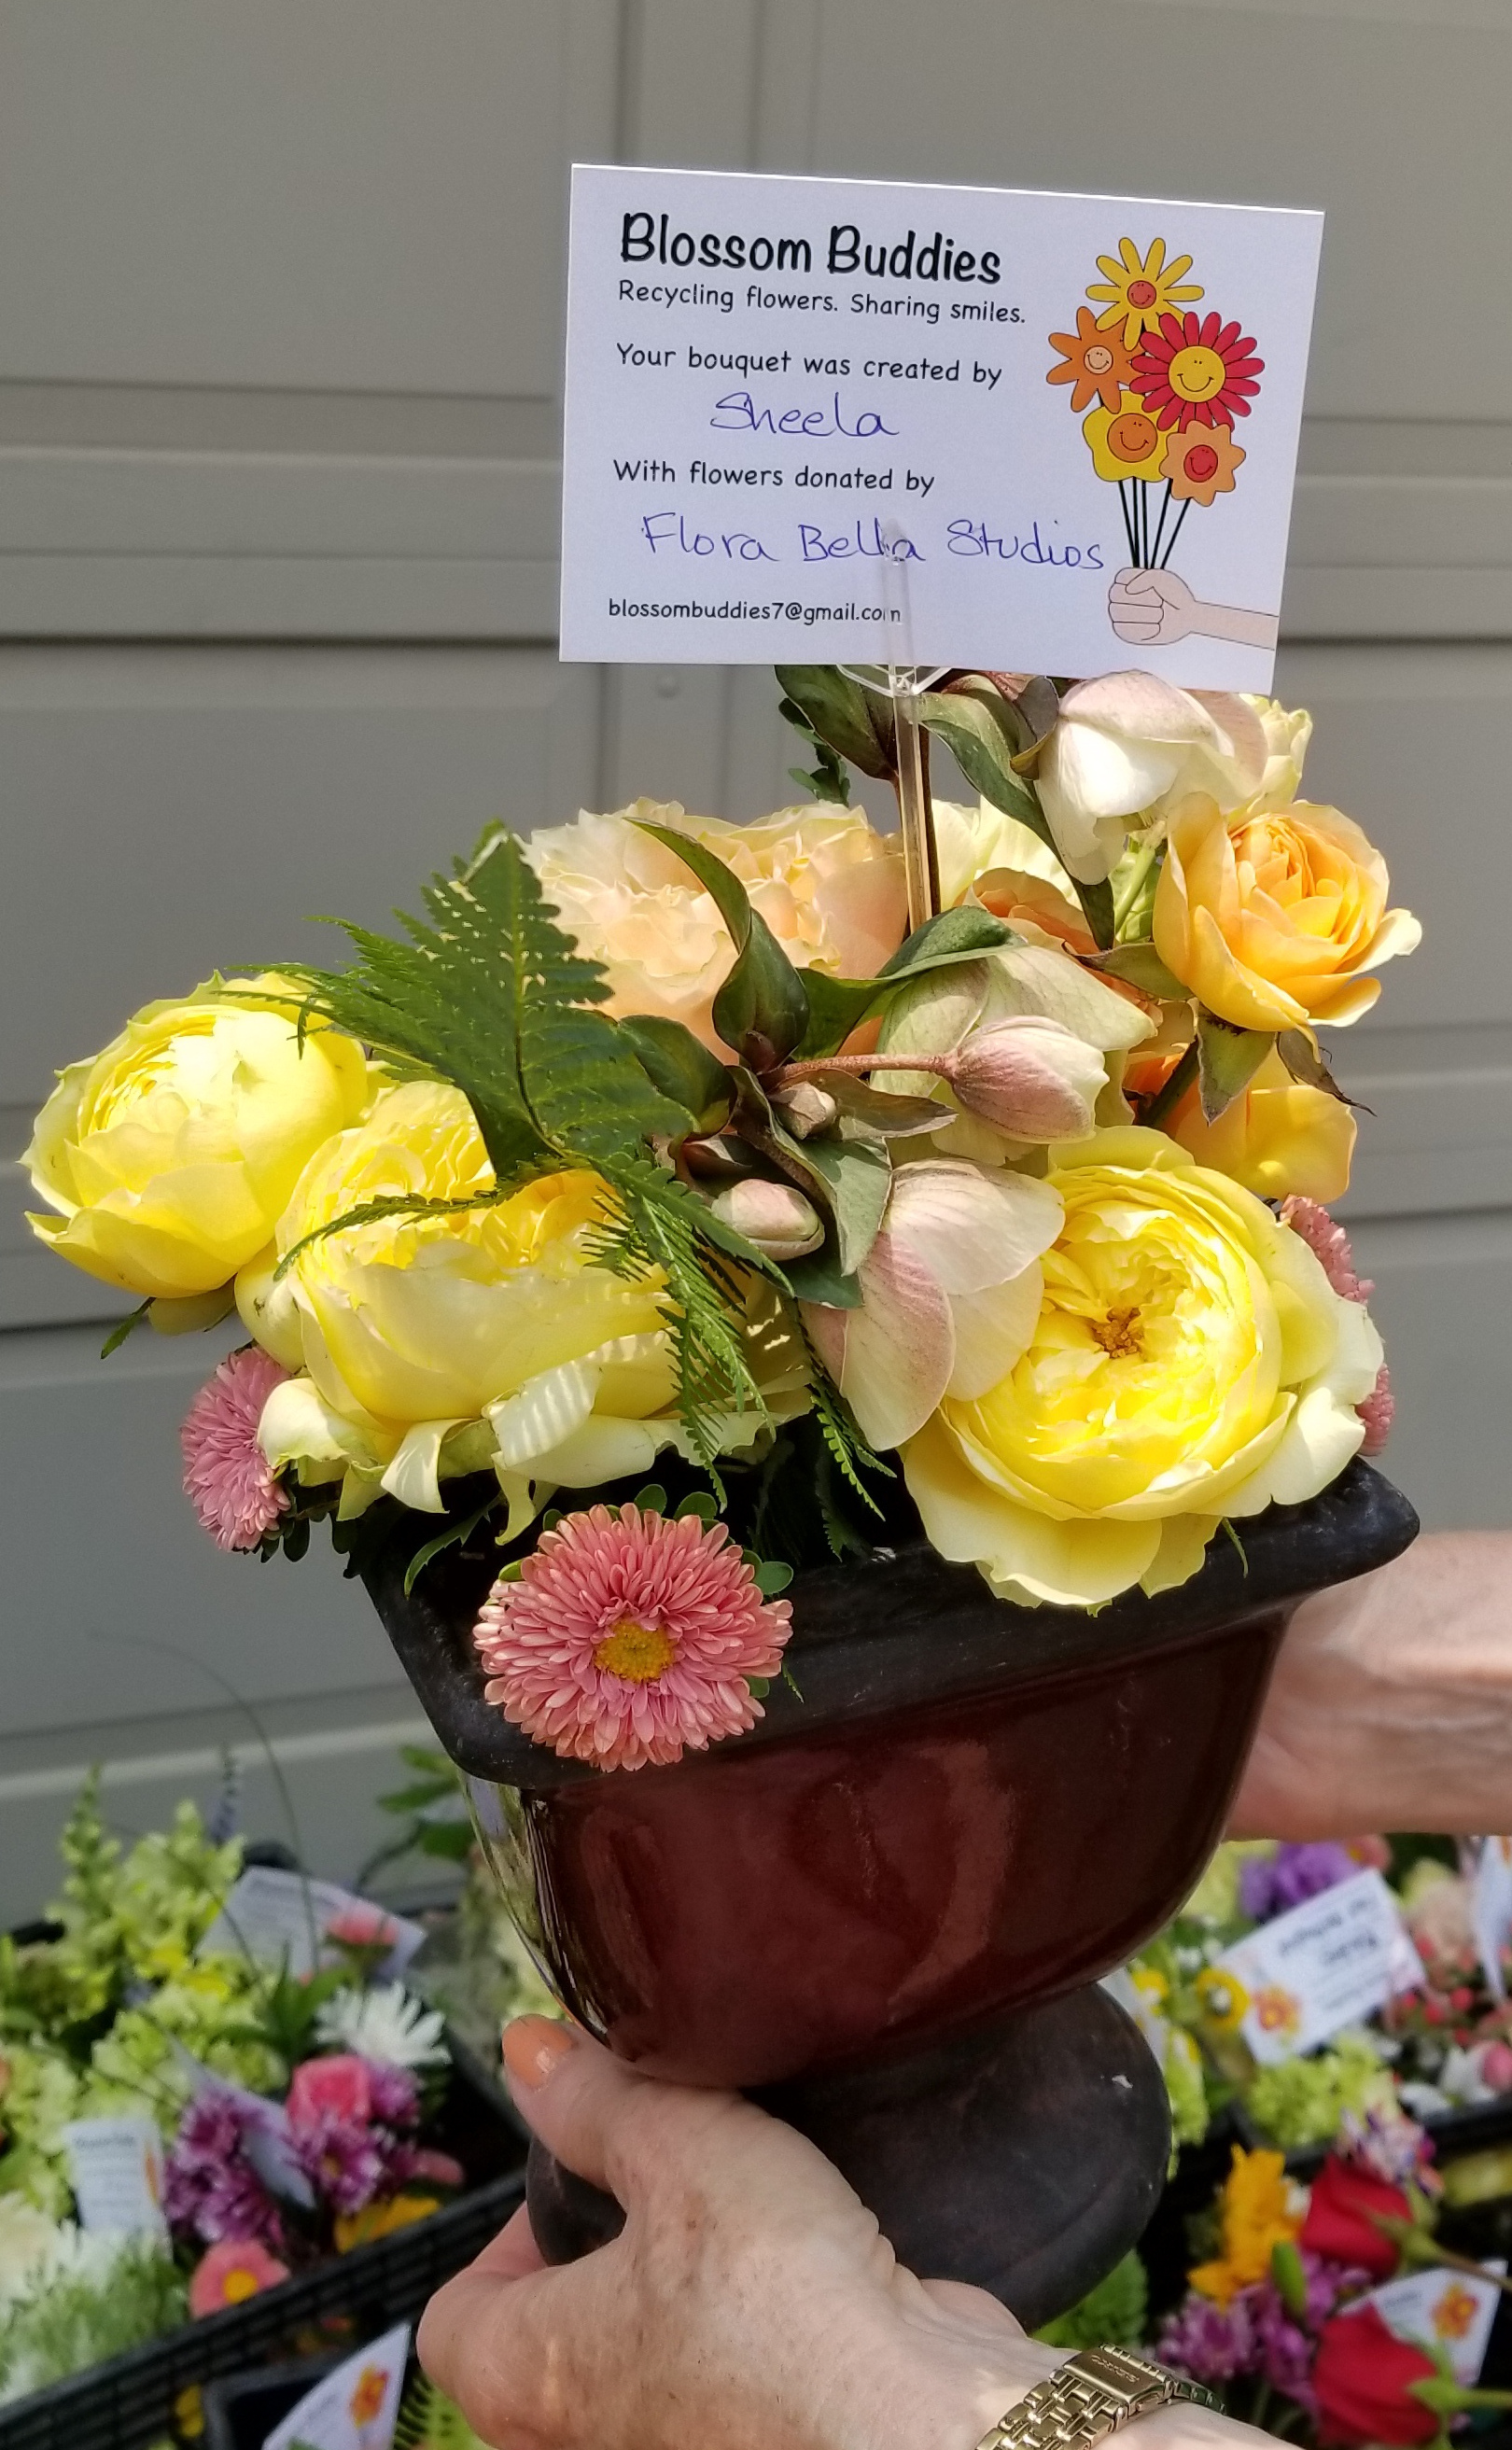 Blossom Buddies
Recycling flowers. Sharing smiles.
Your bouquet was created by
Sheela
With flowers donated by
Flora Bella Studios
blossombuddies7@gmail.com